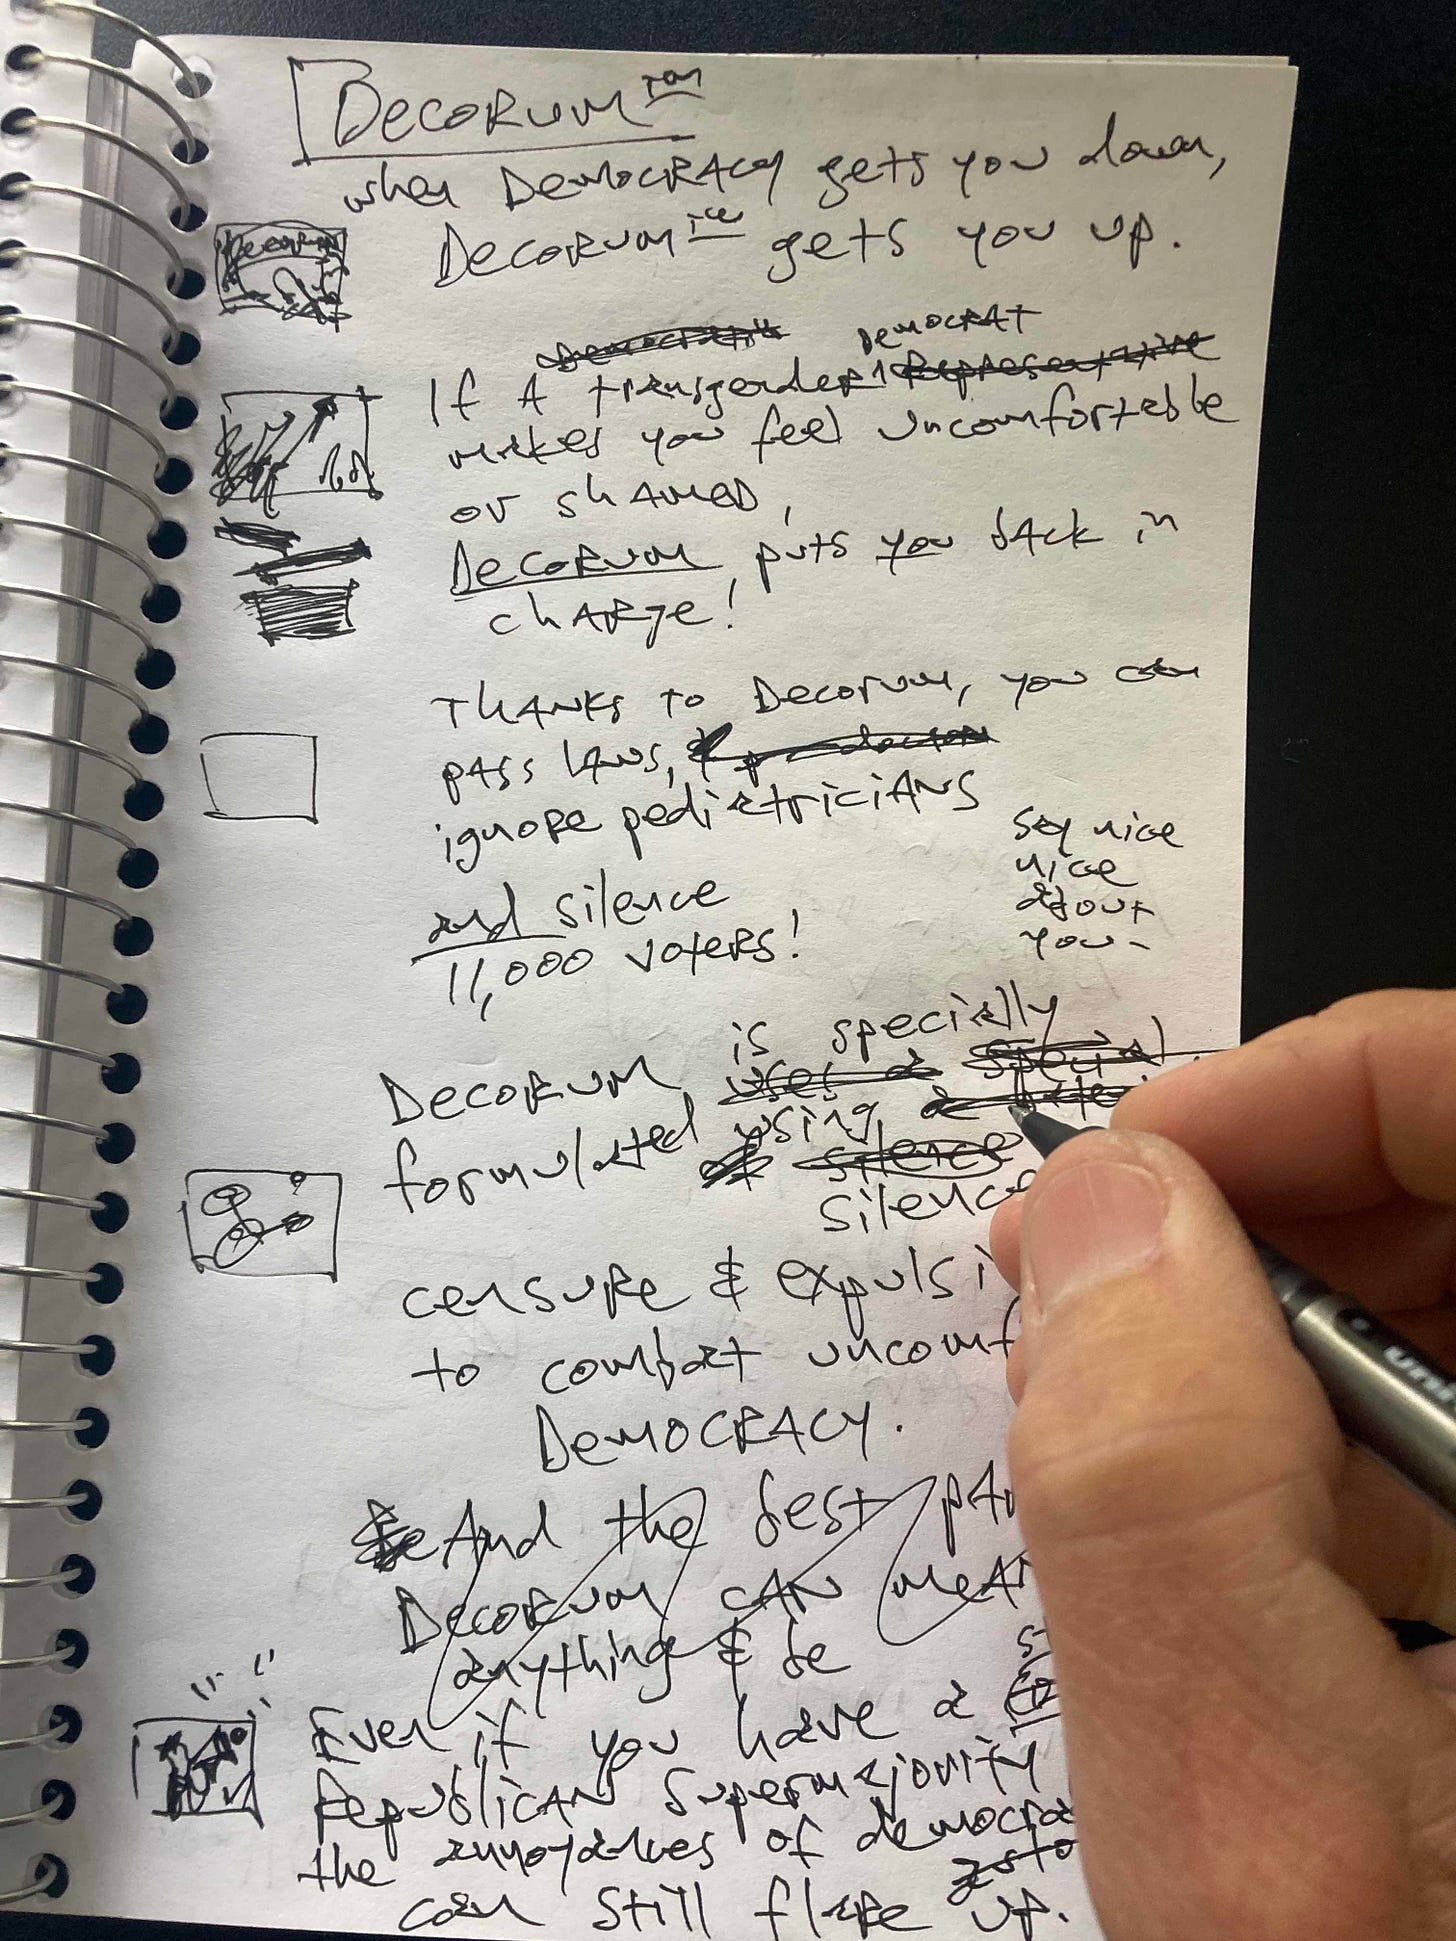 DecoRUM TM
when DemocRACy gets you down,
DecoRUM TM gets you up.
Decorum
DEMOCRAT
If A transgender Representative
makes you feel uncomfortable
or shAMeD,
DecoRUM puts you bAck in
chARge!
THANKS to Decorum, you can
pAss lAws,
ignoRe pediatriciANS
and silence
11,000 voteRs!
say nice
nice
about
you-
is specially
DecoRUM uses a special
formulated using a
silence
silence
censuRe & expulsi
to combat uncomf
DemocRACY.
And the best pA
DecoRUM cAN meAN
anything & be
Even if you have a
RepublicAN Supermajority
the annoyances of democra
can still flaRe up.
uni